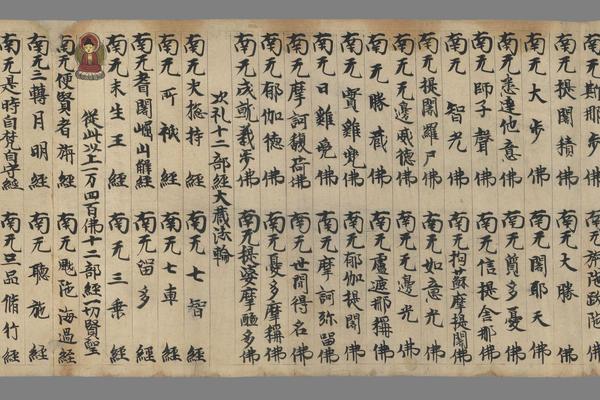 南无提闍積佛　南无大勝佛
南无大步佛　南无闍耶天佛
南无悉達他意佛　南无質多憂佛
南无師子聲佛　南无信提舍那佛
南无智光佛　南无拘蘇摩提闍佛
南无提闍羅尸佛　南无如意光佛
南无无邊威德佛　南无无邊光佛
南无勝藏佛　南无盧遮那稱佛
南无實難兜佛　南无郁伽提闍佛
南无日難兜佛　南无摩訶弥留佛
南无摩訶馥荷佛　南无世間得名佛
南无郁伽德佛　南无憂多摩稱佛
南无成就義步佛　南无提婆摩醯多佛
次礼十二部經大藏法輪
南无大捴持經　南无七智經
南无所祇經　南无七車經
南无耆闍崛山解經　南无留多經
南无未生王經　南无三乘經
從此以上一万四百佛十二部經一切賢聖
南无便賢者經　南无颰陀海過經
南无三轉月明經　南无聽施經
南无是時自梵自守經　南无三品脩行經